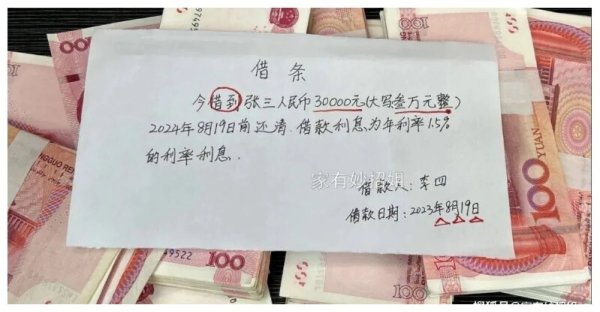 借条
今借到张三人民币30000元(大写叁万元整)
2024年8月19日前还清.借款利息为年利率1.5%
的利率利息.
家有妙招姐
借款人:李四
借款日期:2023年8月19日
100
YUAN
100
100